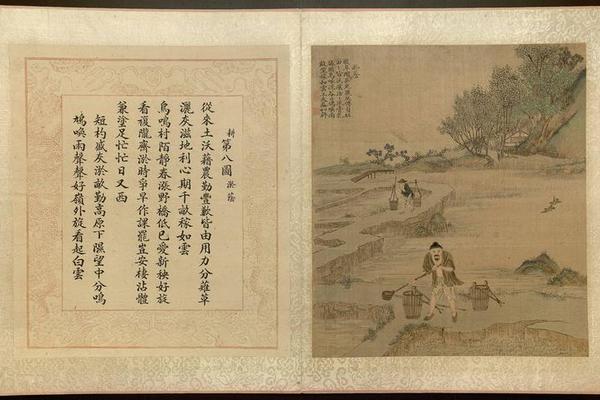 耕第八圖 淤蔭
從來土沃藉農勤豐歉皆由用力分薙草
灑灰滋地利心期千畝稼如雲
鳥鳴村陌靜春漲野橋低已愛新秧好旋
看複隴齊淤時爭早作課罷豈安棲沾體
兼塗足忙忙日又西
短杓盛灰淤畝勤高原下隰望中分鳴
鳩喚雨聲聲好嶺外旋看起白雲
淤蔭
敢望稼如雲工夫蓋如許